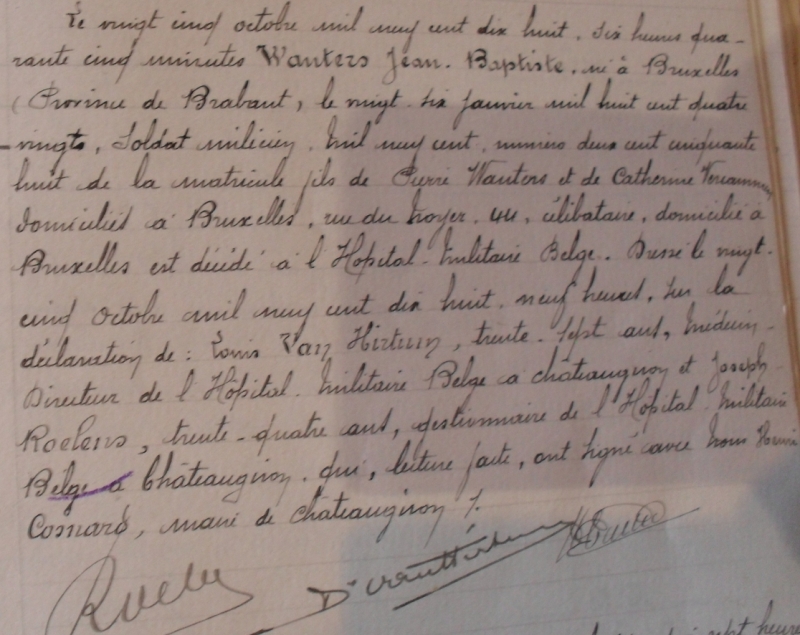 Le vingt cinq octobre mil neuf cent dix huit. six heures qua-
rante cinq minutes Wauters Jean. Baptiste. né à Bruxelles
(Province de Brabant, le vingt. six janvier mil huit cent quatre
vingts, Soldat milicien. Mil neuf cent. numéro deux cent cinquante
huit de la matricule fils de Pierre Wauters et de Catherine
domiciliés à Bruxelles, rue du Noyer. 44, célibataire, domicilié à
Bruxelles est décédé à l'Hopital. Militaire Belge. Dressé le vingt.
cinq Octobre mil neuf cent dix huit. neuf heures, sur la
déclaration de: Louis Van Hirtum, trente. sept ans, Médecin-
Directeur de l'Hôpital. Militaire Belge à châteaugiron et Joseph
Roelens, trente-quatre ans, gestionnaire de l'Hôpital Militaire
Belge à Châteaugiron. qui, lecture faite, ont signé avec Nous
, maire de châteaugiron /.
sept heures